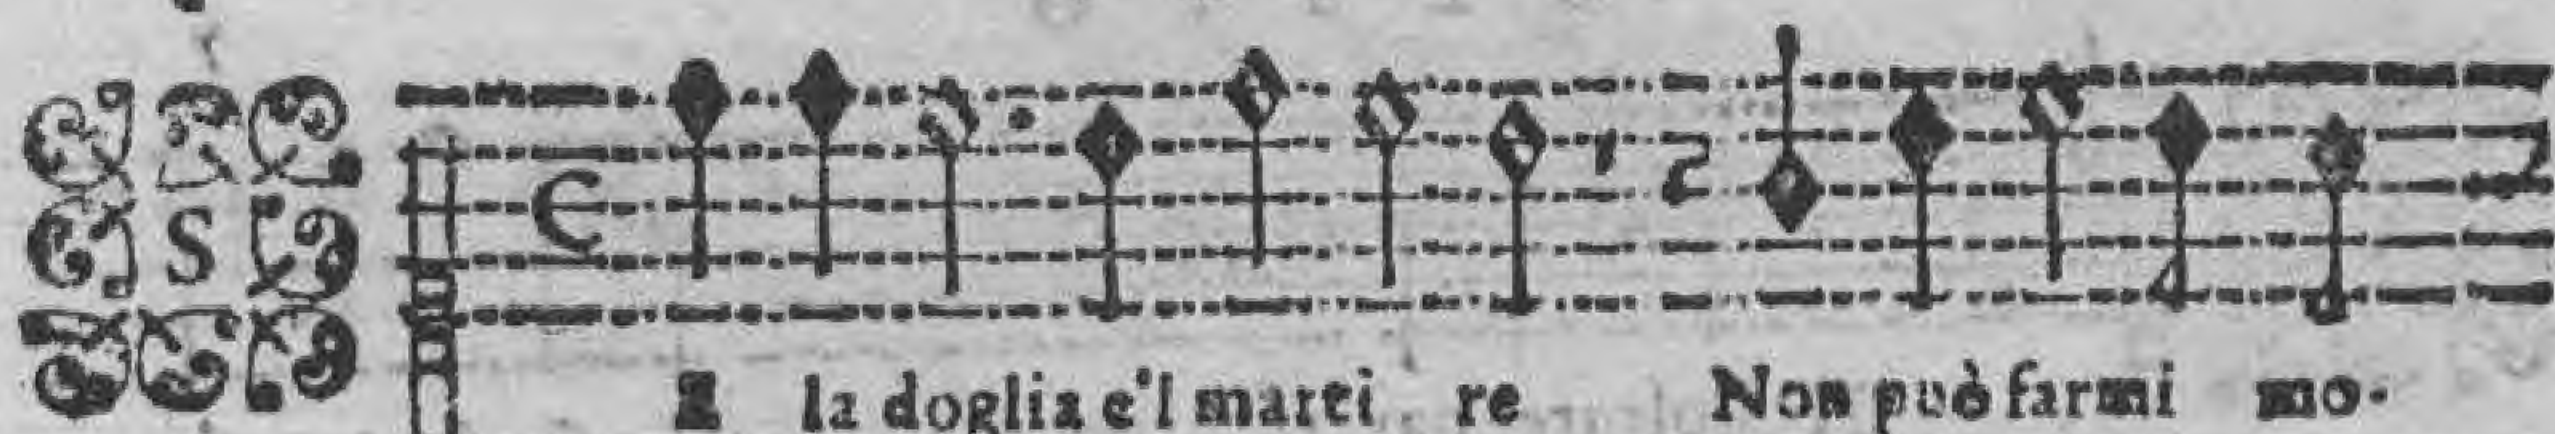 S
E la doglia e'l martire Non può farmi mo-